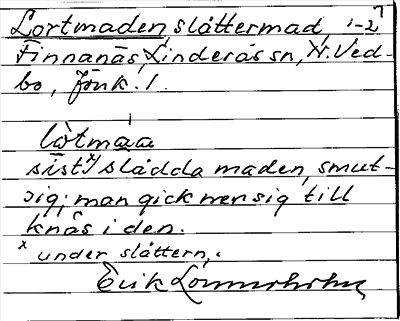 Lortmaden, slåttermad, 1-2
Finnanäs, Linderås sn, N. Ved-
bo, Jönk. l.
lòtmaa
sist x) slådda maden, smut-
sig; man gick ner sig till
knäs i den.
x under slåttern.
Erik